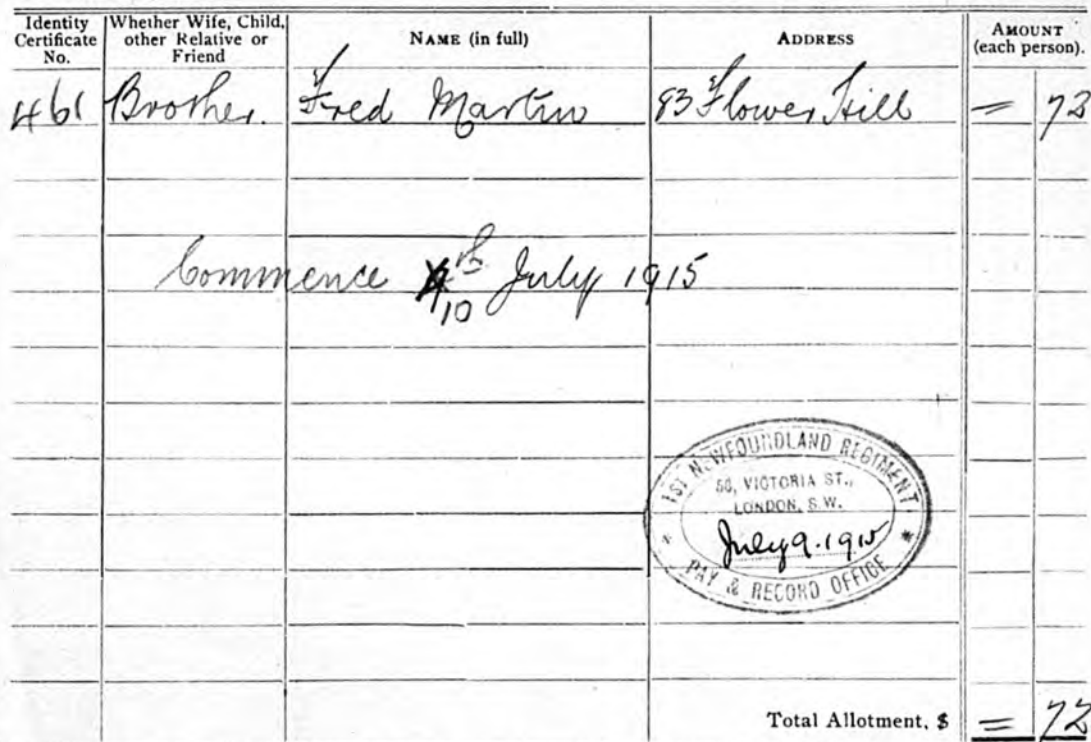 Identity Certificate No.
Whether Wife, Child, other Relative or Friend
NAME (in full)
ADDRESS
AMOUNT (each person).
461 Brother. Fred Martin 83 Flower Hill = 72
Commence 10th July 1915
1ST NEWFOUNDLAND REGIMENT
58, VICTORIA ST.,
LONDON, S.W.
July 9. 1915
PAY & RECORD OFFICE
Total Allotment, $ = 72